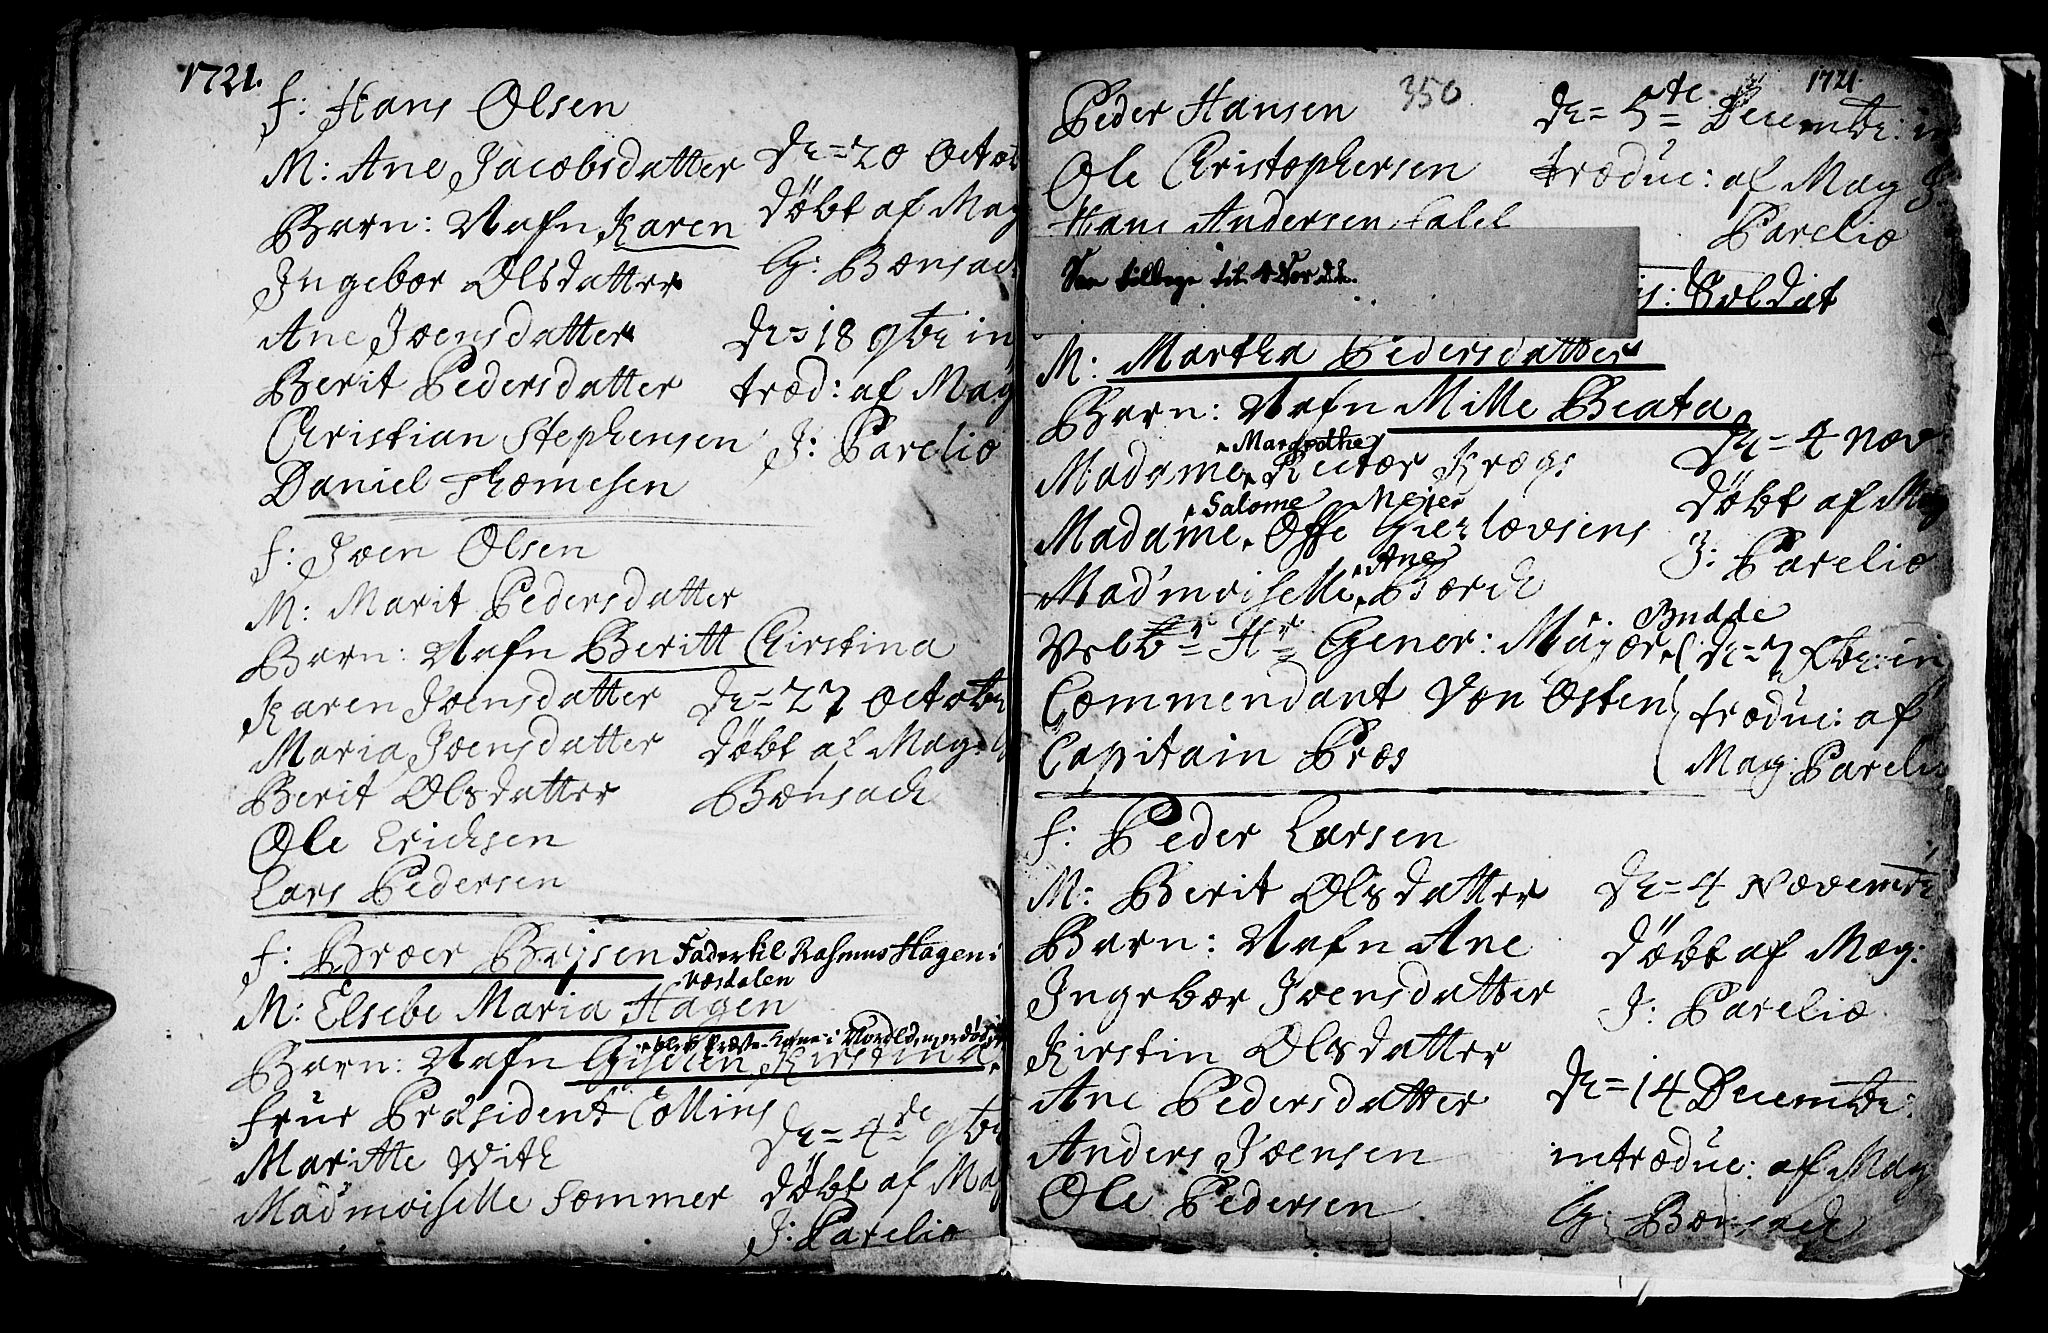 1721.
f: Hans Olsen
M: Ane Jacobsdatter
Barn: Nafn Karen
Ingebor Olsdatter
Ane Joensdatter
Berit Pedersdatter
Christian Stephensen
Daniel Thomesen
De = 20 Octob
døbt af Mag
G: Bonsach
De = 18 9br in
trod: af Mag
J: Parelio
f: Joen Olsen
M: Marit Pedersdatter
Barn: Nafn Beritt Chirstina
Karen Joensdatter
Maria Joensdatter
Berit Olsdatter
Ole Erichsen
Lars Pedersen
De = 27 Octobr
døbt af Mag: G
Bonsach
f: Broer Brijsen Fader til Rasmus Hagen i
Væsdalen
M: Elsebe Maria Hagen
blef Præste-Kone i Nordld.
Barn: Nafn Gischen Kirstina
Frue Præsident Collins
Maritte With
Mad'moiselle Sommer
De = 4de 9br
døbt af Mag
J: Parelio
1721.
350
Peder Hansen
Ole Christophersen
Hans Andersen
De = 5te Decembr: in
troduc: af Mag J.
Parelio
Soldat
M: Martha Pedersdatter
Barn: Nafn Mille Beata
Margrethe
Madame Rector Krogs
Salome Meyer
Madame Offe Gierlovsens
Ane
Mad'moiselle Borch
Budde
Velbr Hr Gener: Major
Commendant Von Osten
Capitain Pros
De = 4 Nov
døbt af Mag
J: Parelio
De = 7 Xbr: in
troduc: af
Mag: Parelio
f: Peder Larsen
M: Berit Olsdatter
Barn: Nafn Ane
Ingebor Joensdatter
Kirstin Olsdatter
Ane Pedersdatter
Anders Joensen
Ole Pedersen
De = 4 Novembr
døbt af Mag:
J: Parelio
De = 14 Decembr:
introduc: af Mag
G: Bonsach